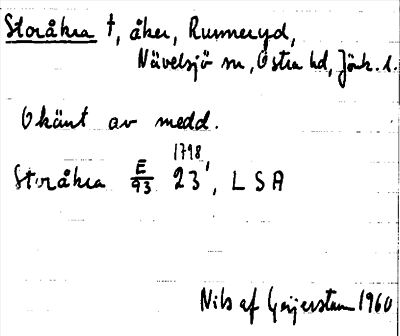 Storåkra †, åker, Runneryd,
Nävelsjö sn, Östra hd, Jönk. l.
Okänt av medd.
1798
Storåkra E/93 23', LSA
Nils af Geijerstam 1960